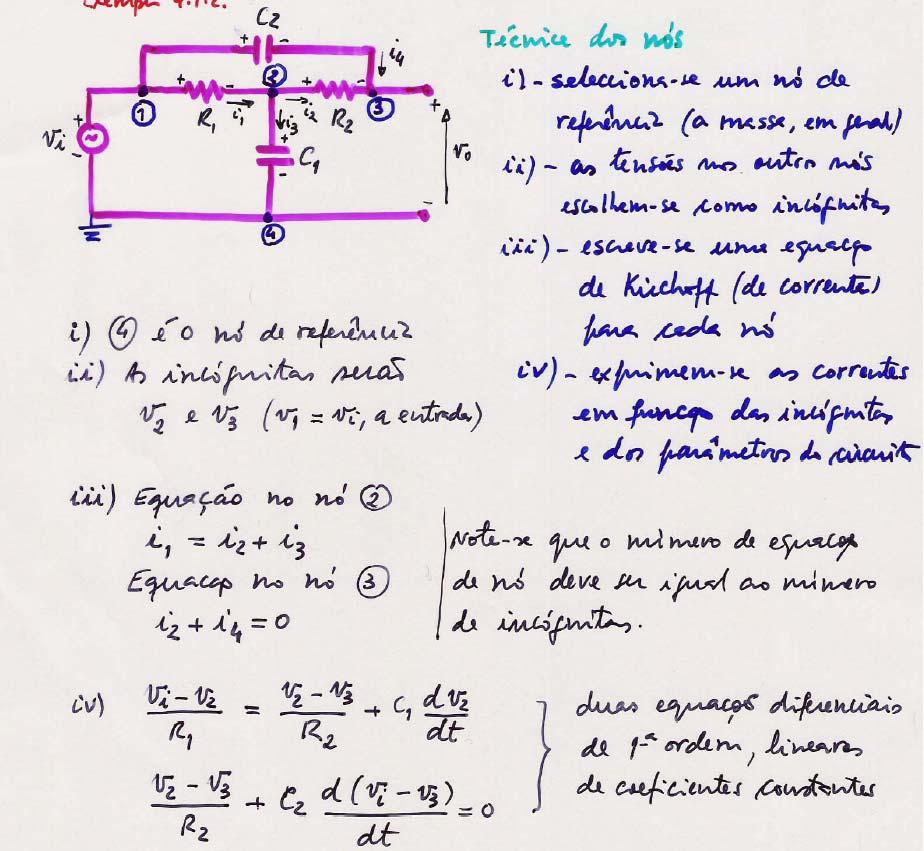 Exemplo 4.1.2.
C2
+ -
i4
+ - 2 + -
1 R1 i1 i2 R2 3 +
i3
vi + - + C1 - v0
-
4
Técnica dos nós
i) - selecciona-se um nó de
referência (a massa, em geral)
ii) - as tensões nos outros nós
escolhem-se como incógnitas
iii) - escreve-se uma equação
de Kirchoff (de corrente)
para cada nó
iv) - exprimem-se as correntes
em função das incógnitas
e dos parâmetros do circuito
i) 4 é o nó de referência
ii) As incógnitas serão
v2 e v3 (v1 = vi, a entrada)
iii) Equação no nó 2
i1 = i2 + i3
Equação no nó 3
i2 + i4 = 0
Note-se que o número de equações
de nó deve ser igual ao número
de incógnitas.
iv) (vi - v2)/R1 = (v2 - v3)/R2 + C1 dv2/dt
(v2 - v3)/R2 + C2 d(vi - v3)/dt = 0
duas equações diferenciais
de 1ª ordem, lineares
de coeficientes constantes